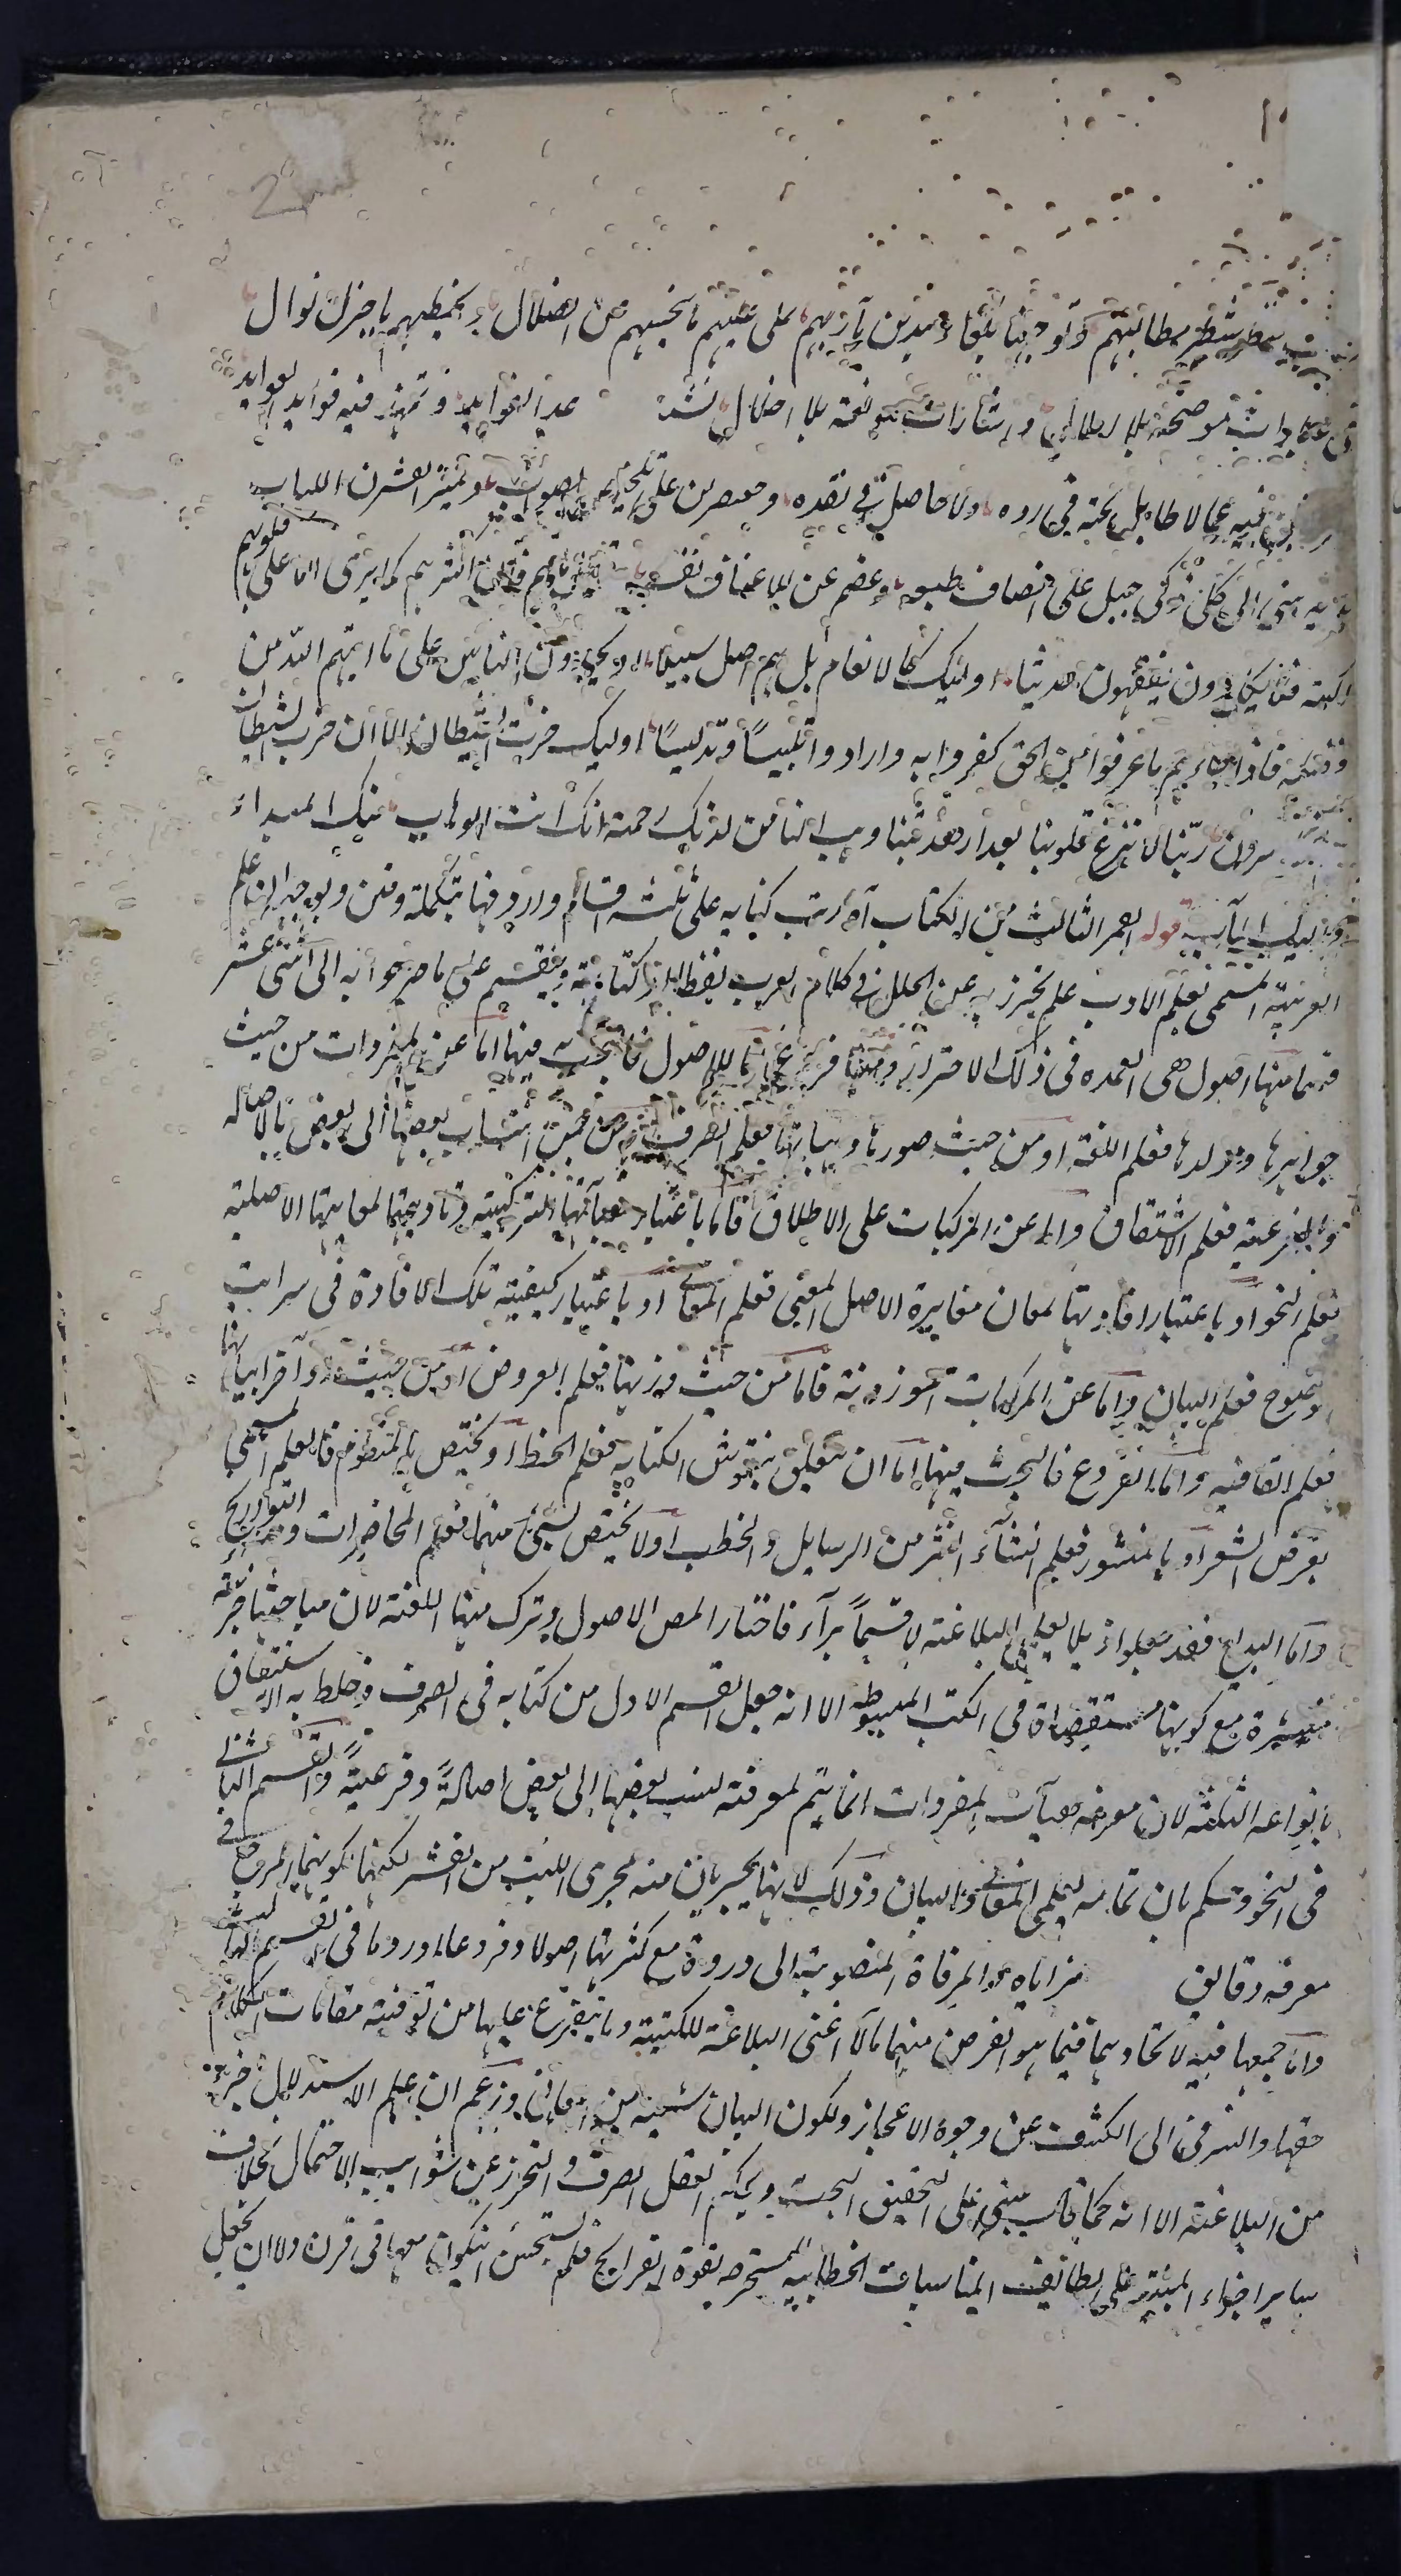 2
شطر مطالبتهم وتوجهنا تلقاء مدين مآربهم على عليهم ما يحببهم عن الضلال ويحظيهم باجزل نوال
فى عبارات موضحة بلا املال واشارات ملوحة بلا اخلال نقيد عبد الفوايد وتمهد فيه فوايد العوايد
فيه عما لا طايل تحته فى رده ولا حاصل فى نقده ومعتصرين على تلخيص الصواب وتميز القشر من اللباب
الى كل ذكى جبل على الانصاف طبعه وعصم عن الاعتساف نفسه فان اكثرهم كما يرى اما على قلوبهم
اكنة فما يكادون يفقهون حديثا اوليك كالانعام بل هم اضل سبيلا او يحسدون الناس على ما آتيهم الله من
فضله فاذا جاءهم ما عرفوا من الحق كفروا به وارادوا تلبيسا وتدليسا اوليك حزب الشيطان الا ان حزب الشيطان
هم الخاسرون ربنا لا تزغ قلوبنا بعد اذ هديتنا وهب لنا من لدنك رحمة انك انت الوهاب منك المبداء
واليك المآب قوله القسم الثالث من الكتاب آه رتب كتابه على ثلثة اقسام واردفها بتكملة وفن وتوجيه ان علم
العربية المسمى بعلم الادب علم يحترز به عن الخلل فى كلام العرب لفظا او كتابة وينقسم على ما صرحوا به الى اثنى عشر
قسما منها اصول هى العمدة فى ذلك الاحتراز ومنها فروع اما الاصول فالبحث فيها اما عن المفردات من حيث
جواهرها وموادها فعلم اللغة او من حيث صورها وهياتها فعلم الصرف او من حيث انتساب بعضها الى بعض بالاصالة
والفرعية فعلم الاشتقاق واما عن المركبات على الاطلاق فاما باعتبار هيآتها التركيبية وتاديتها لمعانيها الاصلية
فعلم النحو او باعتبار افادتها لمعان مغايرة لاصل المعنى فعلم المعانى او باعتبار كيفية تلك الافادة فى مراتب
الوضوح فعلم البيان واما عن المركبات الموزونة فاما من حيث وزنها فعلم العروض او من حيث اواخر ابياتها
فعلم القافية واما الفروع فالبحث فيها اما ان يتعلق بنقوش الكتابة فعلم الخط او يختص بالمنظوم فالعلم المسمى
بقرض الشعر او بالمنثور فعلم انشاء النثر من الرسايل والخطب او لا يختص بشىء منهما فعلم المحاضرات ومنه التواريخ
واما البديع فقد جعلوه ذيلا لعلمى البلاغة لا قسما برآسه فاختار المص الاصول وترك منها اللغة لان مباحثها جزئية
منتشرة مع كونها مستقصاة فى الكتب المبسوطة الا انه جعل القسم الاول من كتابه فى الصرف وخلط به الاشتقاق
بانواعه الثلثة لان معرفة هيآت المفردات انما يتم لمعرفة نسب بعضها الى بعض اصالة وفرعية والقسم الثانى
فى النحو وحكم بان تمامه بعلمى المعانى والبيان وذلك لانهما يجريان منه مجرى اللب من القشر لكنهما لكونهما المرجع فى
معرفة دقايق مزاياه والمرقاة المنصوبة الى ذروة مع كثرتها اصولا وفروعا اوردهما فى القسم الثالث
واما جمعهما فيه لاتحادهما فيما هو الغرض منهما مآلا اعنى البلاغة للكتبية وما يتفرع عليها من توفية مقامات الكلام
حقها والترقى الى الكشف عن وجوه الاعجاز ولكون البيان شعبة من المعانى وزعم ان علم الاستدلال جزء
من البلاغة الا انه لما كان مبنى على التحقيق البحت وحكم العقل الصرف والتحرز عن شوايب الاحتمال بخلاف
ساير اجزاء المبنية على لطائف المناسبات الخطابية المستخرجة بقوة القرايح فلم يستحسن ان يكون معها فى قرن ولا ان يجعل